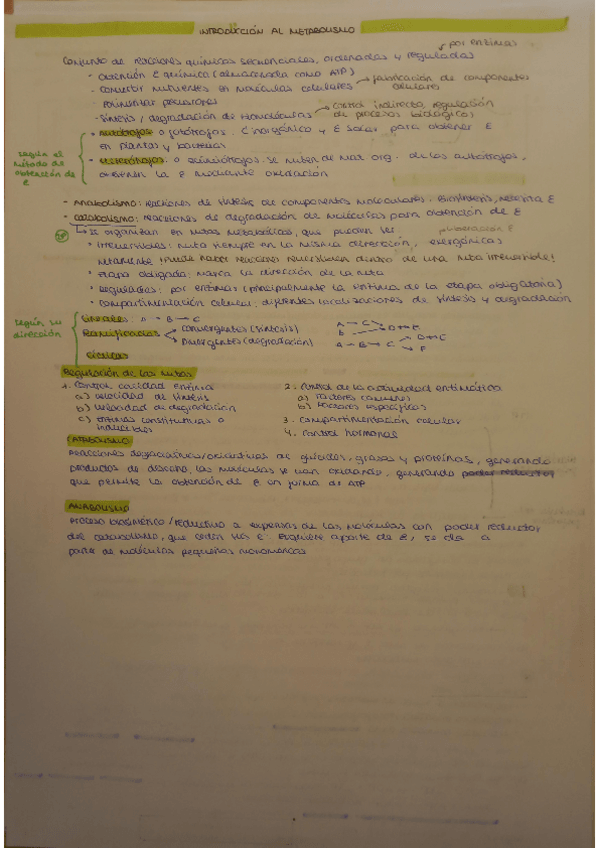 INTRODUCCIÓN AL METABOLISMO
por enzimas
Conjunto de reacciones químicas secuenciales, ordenadas y reguladas
- obtención E química (almacenada como ATP)
- convertir nutrientes en moléculas celulares → fabricación de componentes celulares
- polimerizar precursores
- síntesis / degradación de biomoléculas → control indirecto, regulación de procesos biológicos
según el método de obtención de E
• autótrofos o fotótrofos: C inorgánico y E solar para obtener E
en plantas y bacterias
• heterótrofos o quimiótrofos: se nutren de mat. org. de los autótrofos,
obtienen la E mediante oxidación
- Anabolismo: reacciones de síntesis de componentes moleculares. Biosíntesis, necesita E
- catabolismo: reacciones de degradación de moléculas para obtención de E
se organizan en rutas metabólicas, que pueden ser
liberación E
• irreversibles: ruta siempre en la misma dirección, exergónicas
¡Puede haber reacciones reversibles dentro de una ruta irreversible!
• etapa obligada: marca la dirección de la ruta
• reguladas: por enzimas (principalmente la enzima de la etapa obligatoria)
• compartimentación celular: diferentes localizaciones de síntesis y degradación
según su dirección
lineales: A → B → C
Ramificadas
convergentes (síntesis)
Divergentes (degradación)
A → C
B
D → E
A → B → C
D → E
F
cíclicas
Regulación de las rutas
1. Control cantidad enzima
a) velocidad de síntesis
b) velocidad de degradación
c) enzimas constitutivas o inducibles
2. control de la actividad enzimática
a) Factores comunes
b) Factores específicos
3. compartimentación celular
4. control hormonal
CATABOLISMO
Reacciones degradativas/oxidativas de glúcidos, grasas y proteínas, generando
productos de desecho, las moléculas se van oxidando, generando poder reductor
que permite la obtención de E en forma de ATP
ANABOLISMO
Proceso biosintético/reductivo a expensas de las moléculas con poder reductor
del catabolismo, que ceden sus e⁻. Requiere aporte de E, se da a
partir de moléculas pequeñas monoméricas